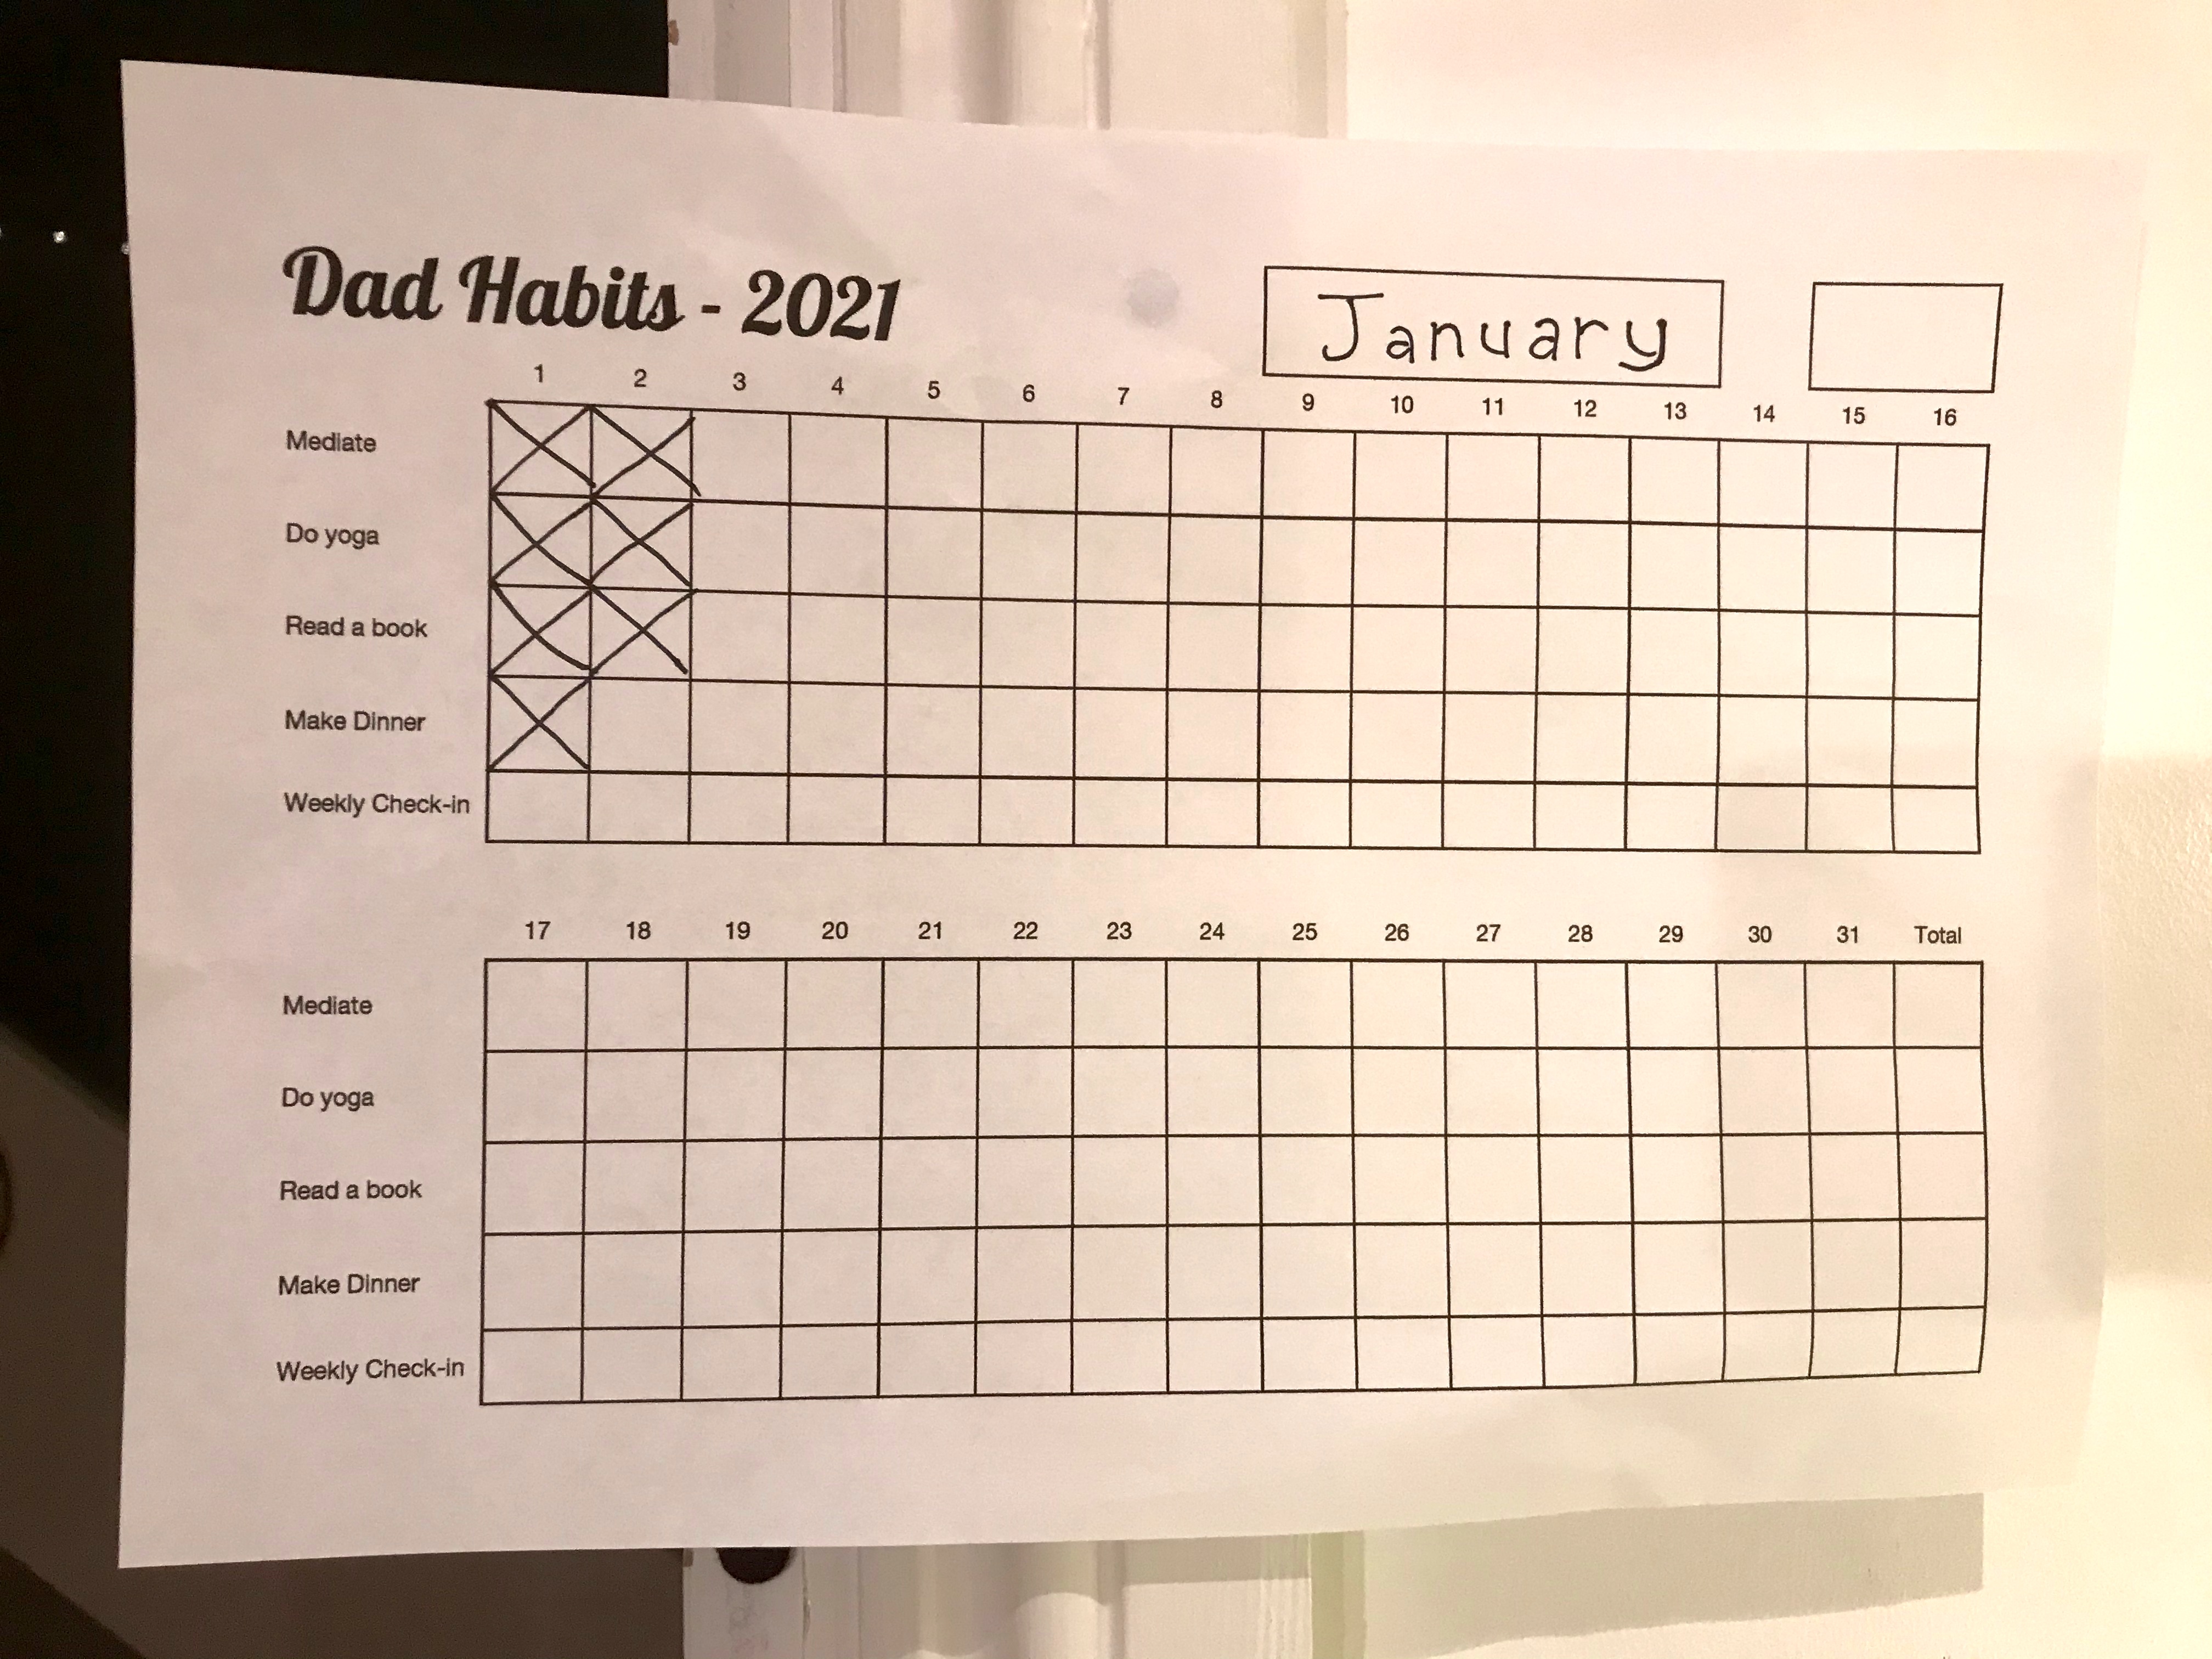 Dad Habits - 2021
January
1 2 3 4 5 6 7 8 9 10 11 12 13 14 15 16
Mediate
Do yoga
Read a book
Make Dinner
Weekly Check-in
17 18 19 20 21 22 23 24 25 26 27 28 29 30 31 Total
Mediate
Do yoga
Read a book
Make Dinner
Weekly Check-in